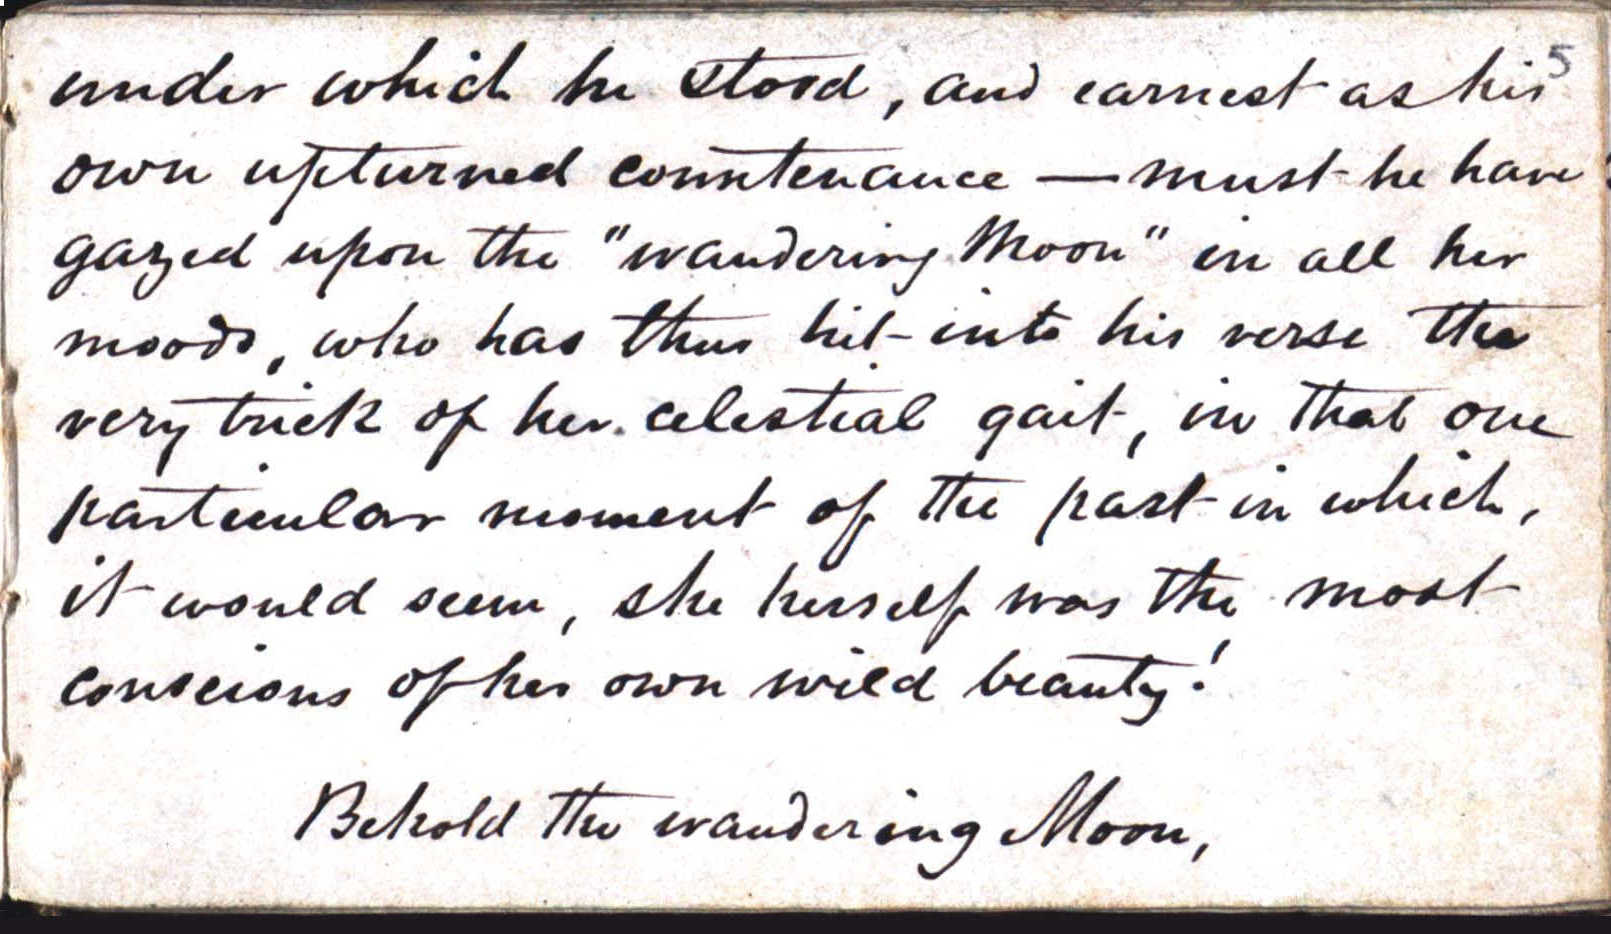 5
under which he stood, and earnest as his
own upturned countenance — must he have
gazed upon the "wandering Moon" in all her
moods, who has thus hit into his verse the
very trick of her celestial gait, in that one
particular moment of the past in which,
it would seem, she herself was the most
conscious of her own wild beauty!
Behold the wandering Moon,